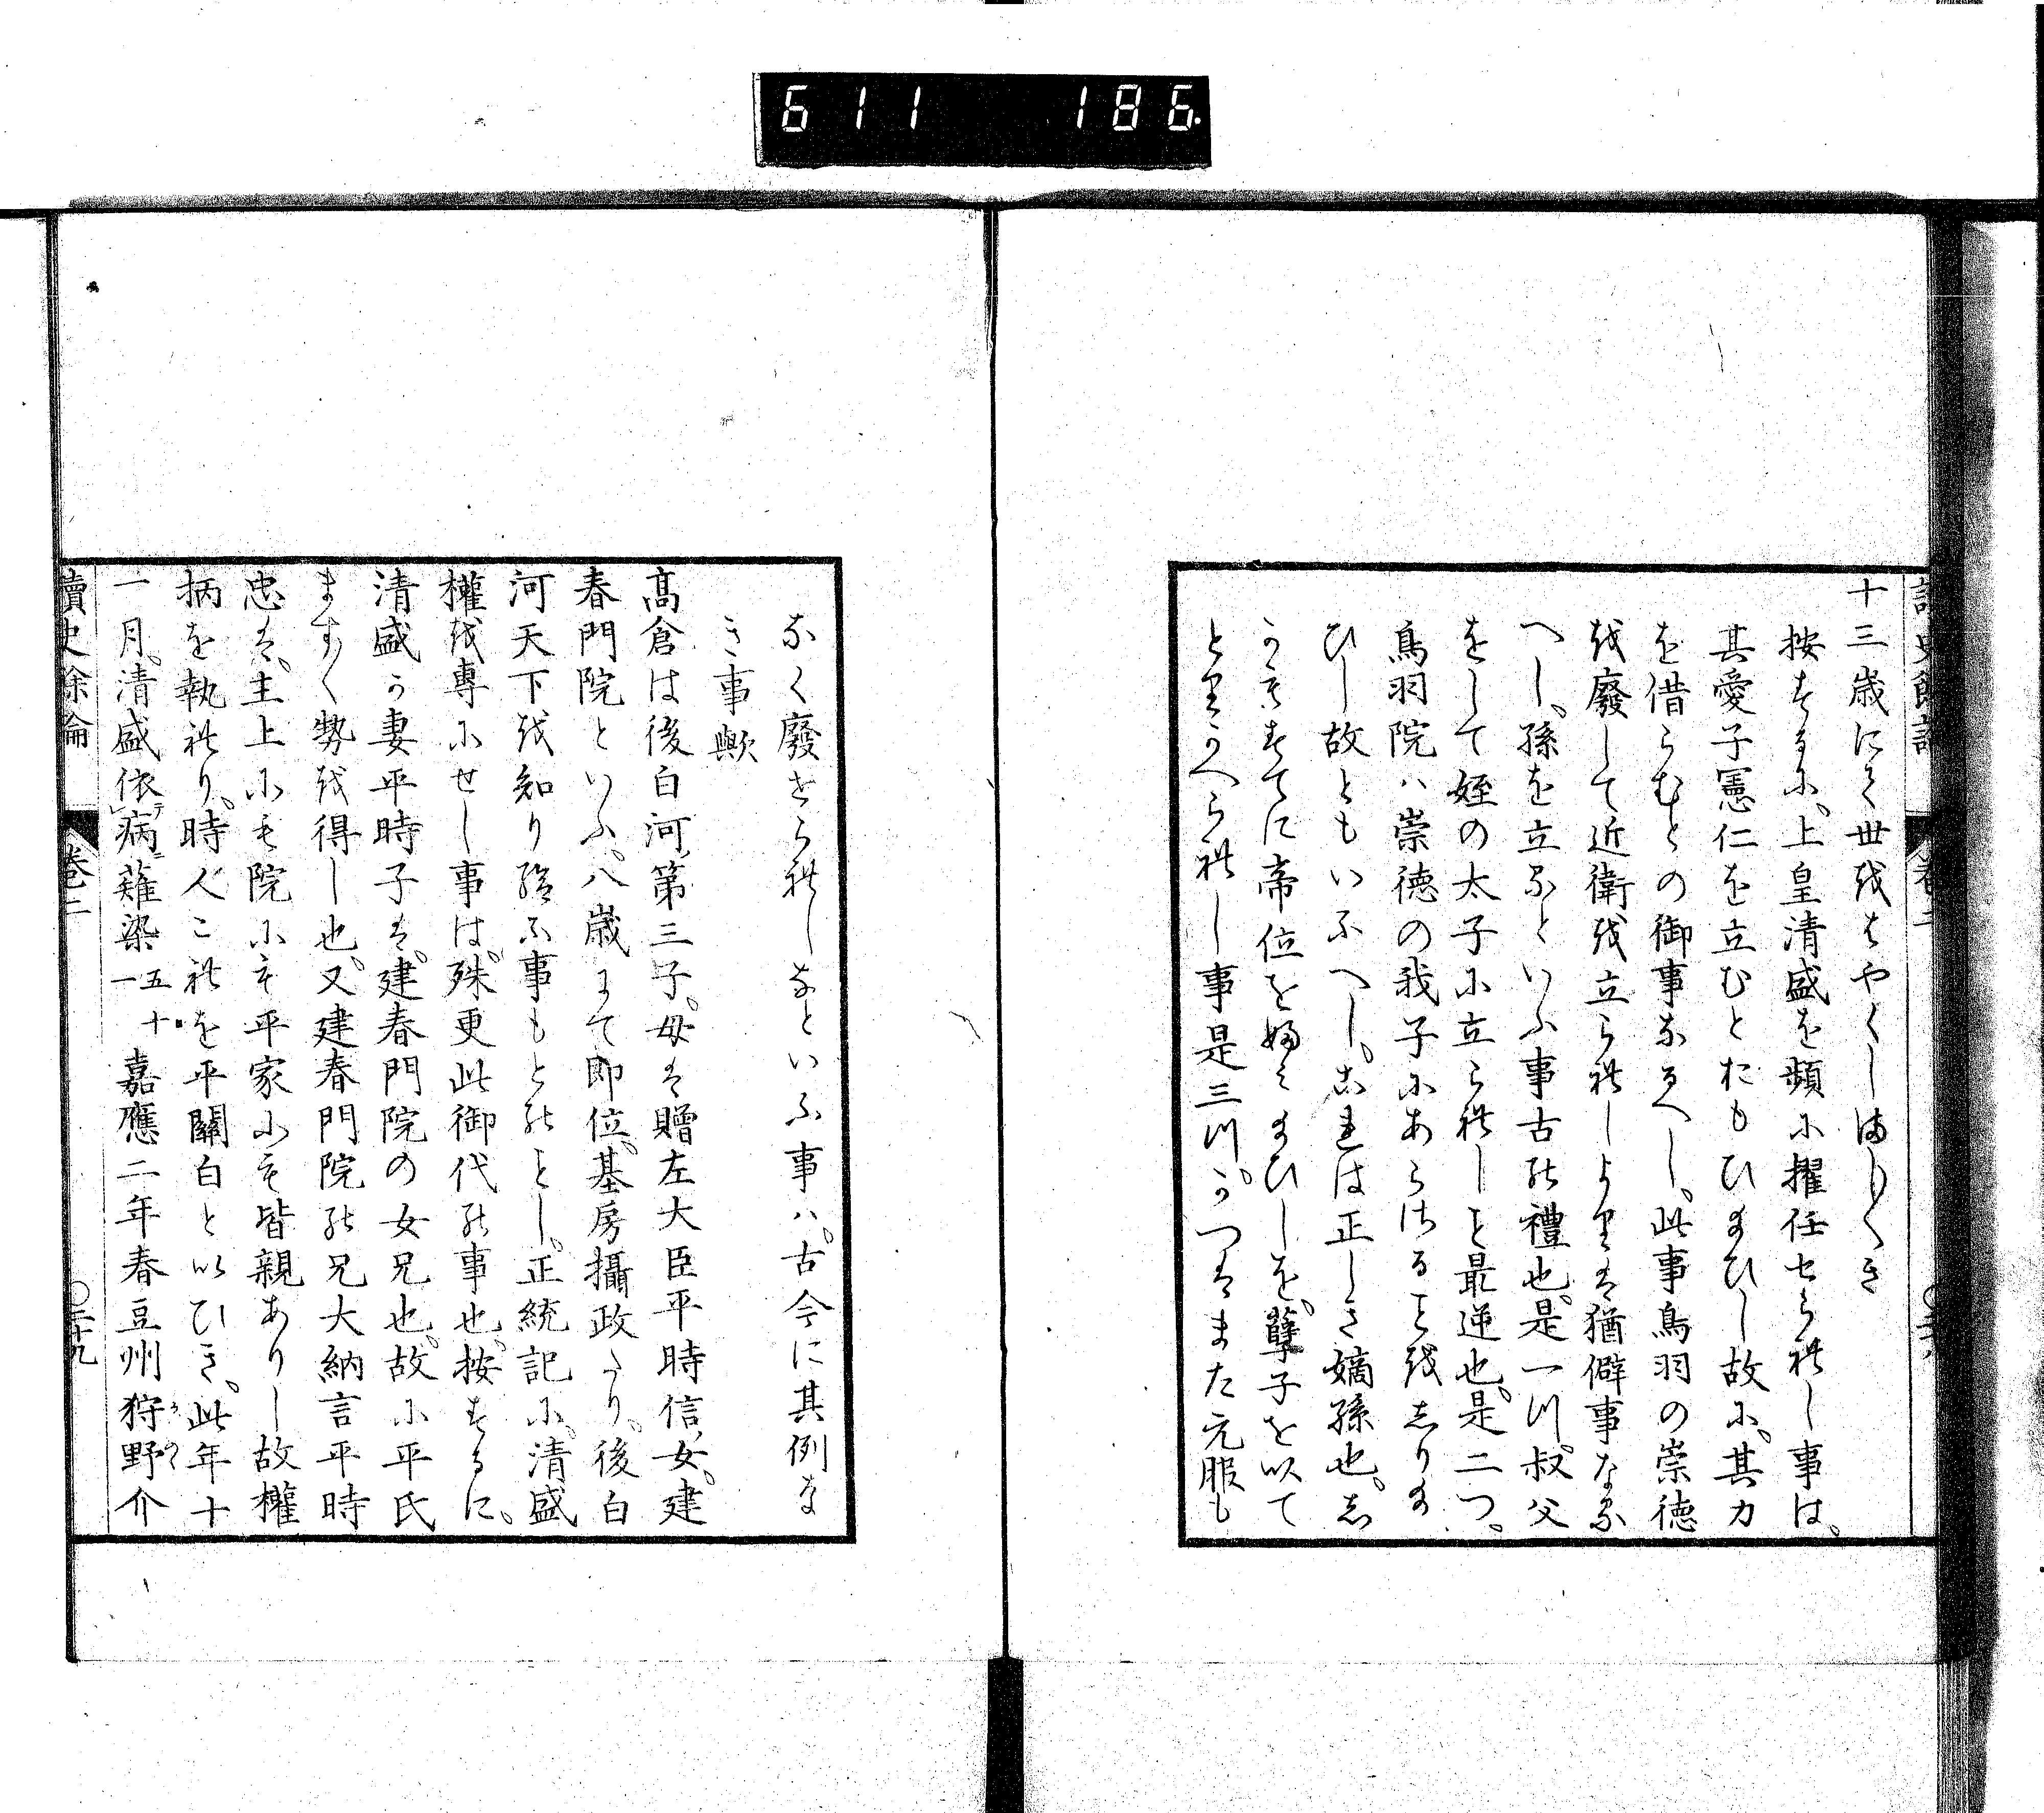 611 186
讀史餘論 卷二 〇三十八
十三歳にて世をはやくしましましき
按するに、上皇清盛を頻に擢任せられし事は。
其愛子憲仁を立むとおもひ給ひし故に。其力
を借らむとの御事なるへし。此事鳥羽の崇徳
を廢して近衛を立られしよりは猶僻事なる
へし。孫を立るといふ事古の禮也。是一つ。叔父
をして姪の太子に立られしこと最逆也。是二つ。
鳥羽院ハ崇徳の我子にあらさることをしり給
ひし故ともいふへし。これは正しき嫡孫也。し
かもすてに帝位を嫡し給ひしを。孽子を以て
とりかへられし事是三つ。かつはまた元服も
なく廢せられしなといふ事ハ。古今に其例な
き事歟
高倉は後白河第三子。母は贈左大臣平時信女。建
春門院といふ。八歳にて即位。基房攝政たり。後白
河天下を知り給ふ事もとのことし。正統記に。清盛
權を專にせし事は。殊更此御代の事也。按するに。
清盛か妻平時子は。建春門院の女兄也。故に平氏
ますます勢を得し也。又建春門院の兄大納言平時
忠は。主上にも院にも平家にも皆親ありし故權
柄を執れり。時人これを平關白と以ひき。此年十
一月。清盛依レ病テ薙染ニ五十一 嘉應二年春豆州狩野介
讀史餘論 卷二 〇三十九